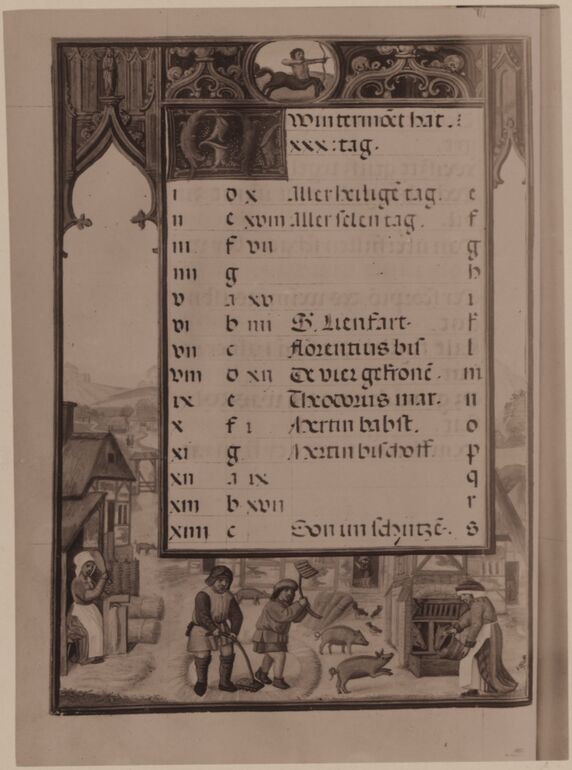 Wintermoet hat.
xxx: tag.
i d x Allerheilige tag. e
ii e xviii Allerselen tag. f
iii f vii g
iiii g h
v a xv i
vi b iiii S. Lienhart. k
vii c Florentius bis l
viii d xii De vier gekrone. m
ix e Theodorus mar. n
x f i Mertin babst. o
xi g Mertin bischoff. p
xii a ix q
xiii b xvii r
xiiii c Son im schutze. s